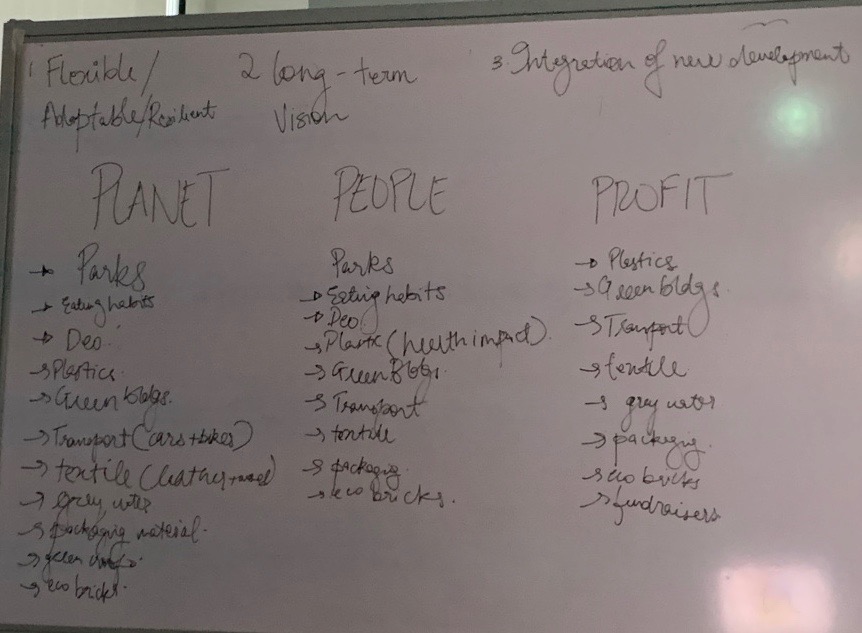 1 Flexible/
Adaptable/Resilient
2 long-term
Vision
3. Integration of new development
PLANET
→ Parks
→ Eating habits
→ Deo
→ Plastics
→ Green bldgs.
→ Transport (cars+bikes)
→ textile (leather+wool)
→ grey water
→ packaging material.
→ green
→ eco bricks.
PEOPLE
Parks
→ Eating habits
→ Deo
→ Plastic (health impact)
→ Green Bldgs
→ Transport
→ textile
→ packaging
→ eco bricks.
PROFIT
→ Plastics
→ Green bldgs.
→ Transport
→ textile
→ grey water
→ packaging.
→ eco bricks
→ fundraisers